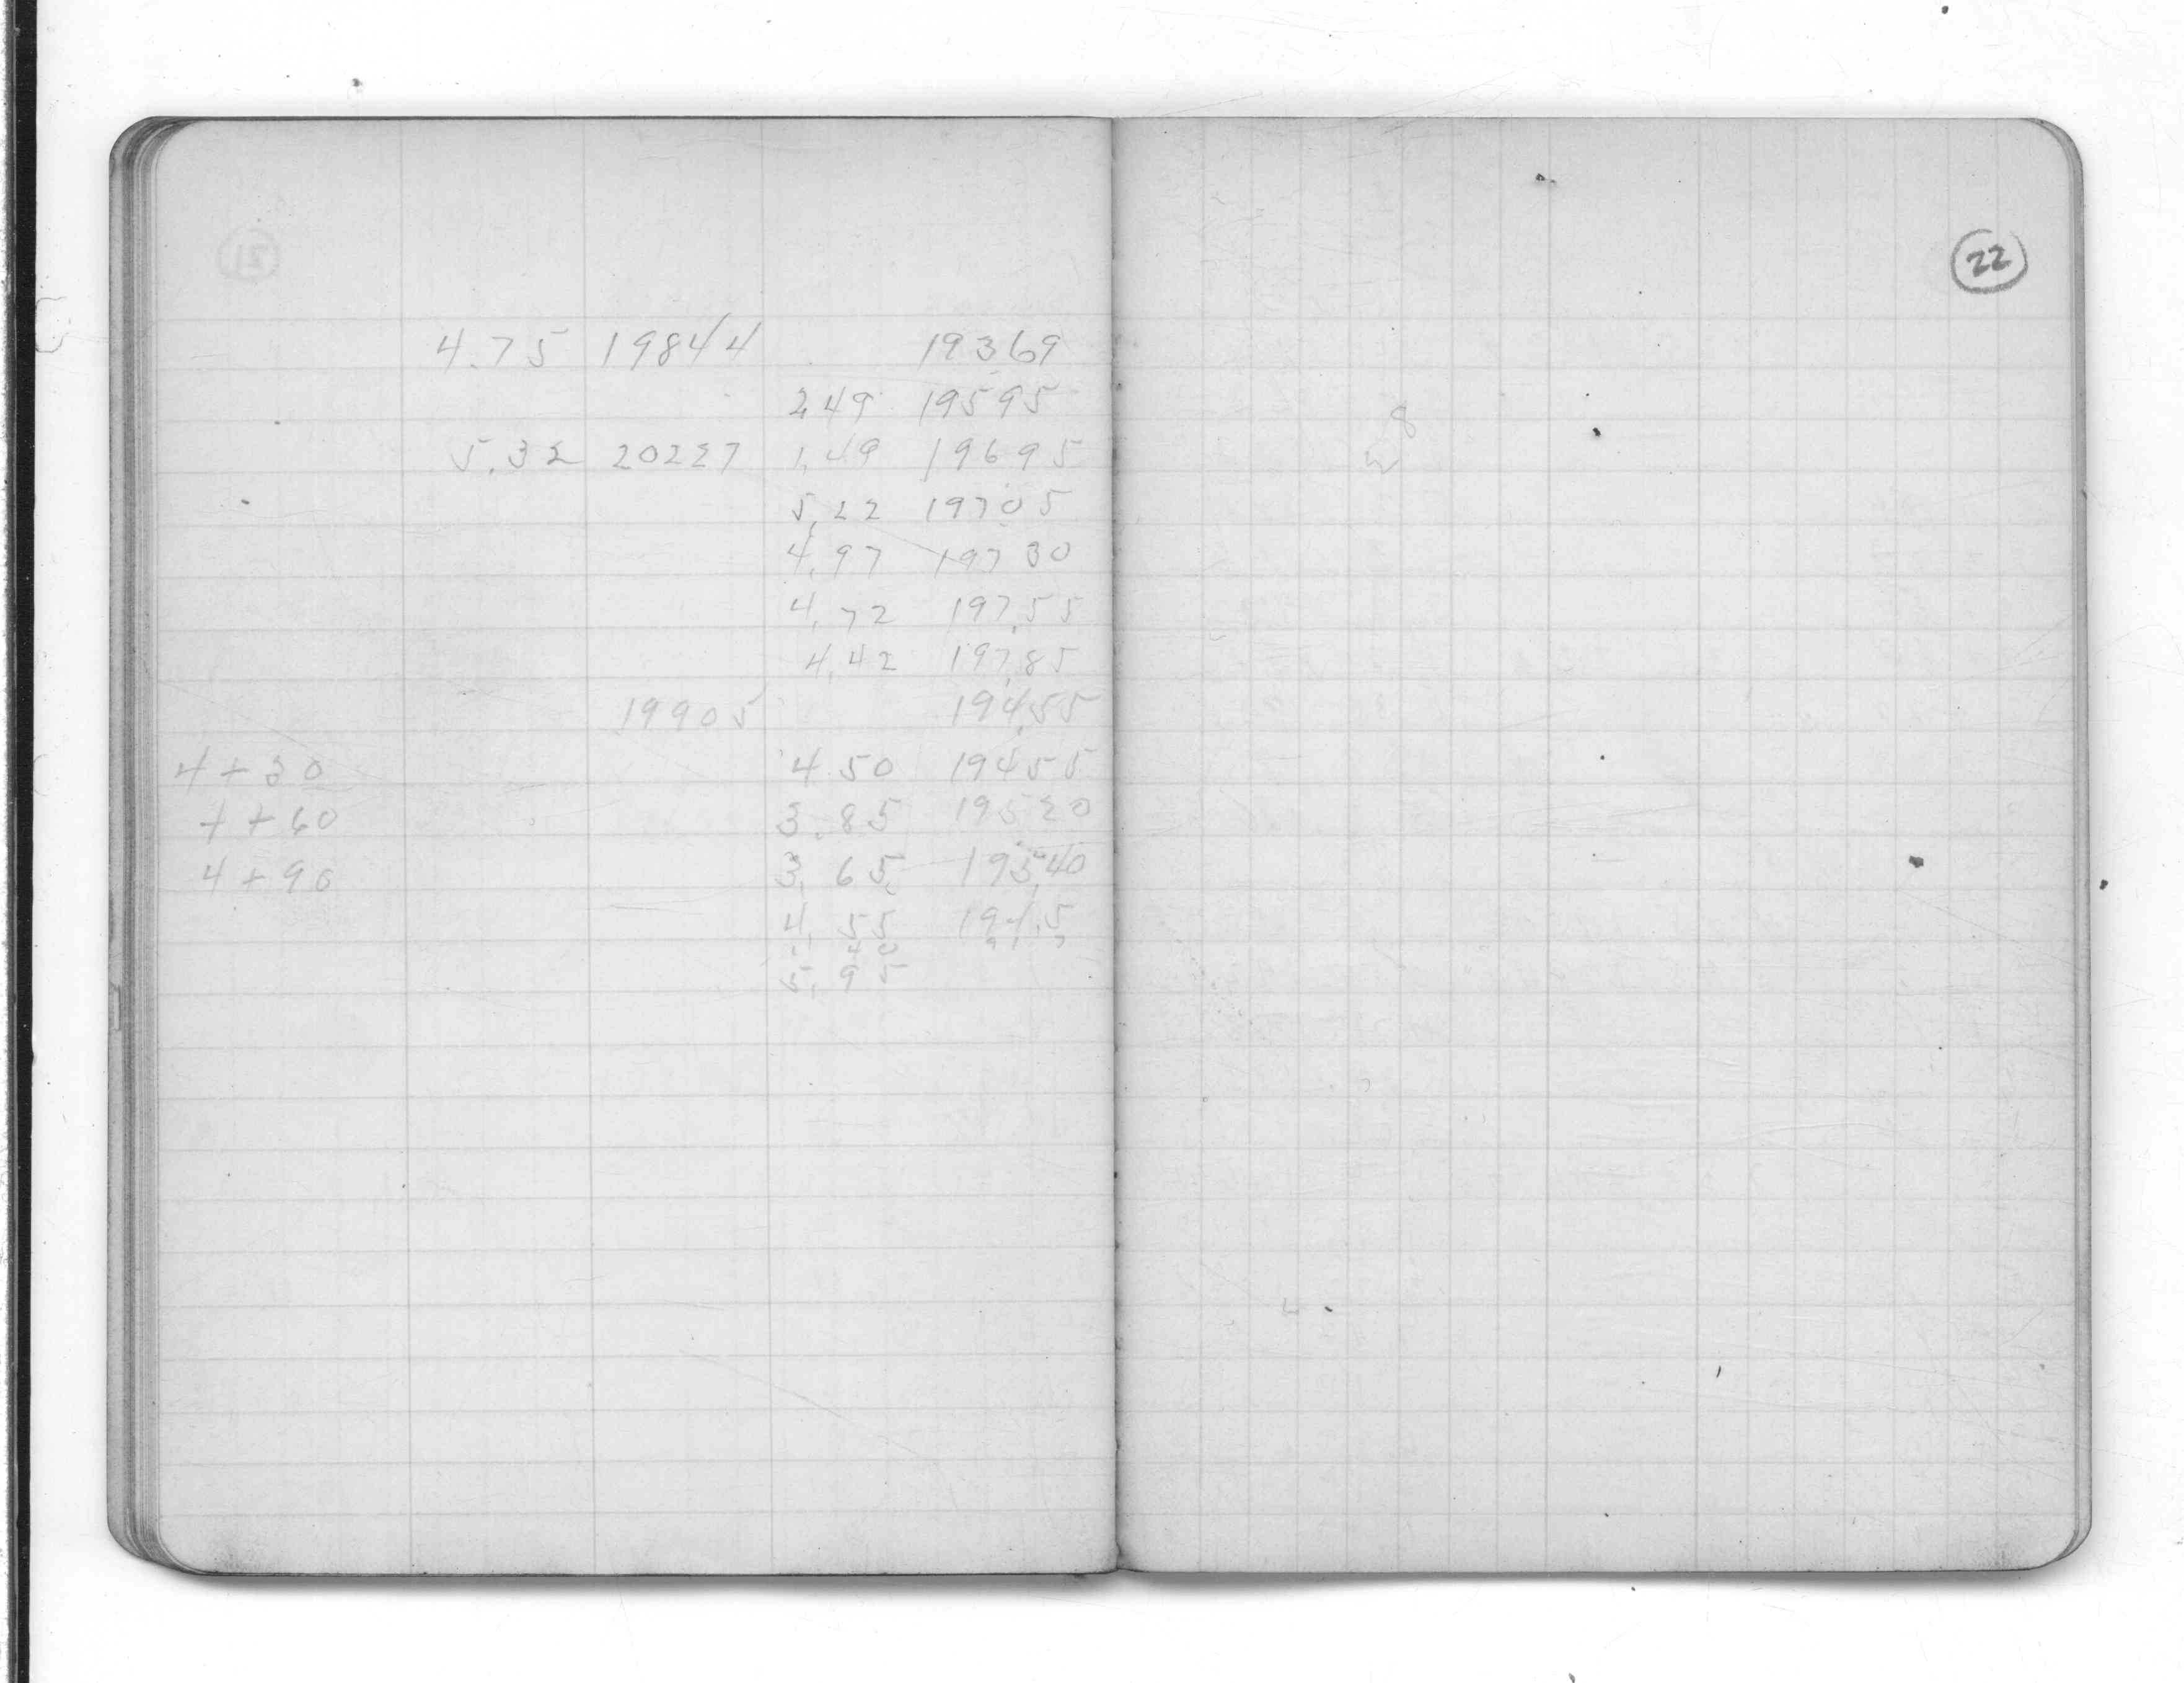 22
4.75 19844 19369
2.49 19595
5.32 20227 1.49 19695
5.22 19705
4.97 19730
4.72 19755
4.42 19785
19905 19455
4+30 4.50 19455
4+60 3.85 19520
4+90 3.65 19540
4.55
5.95